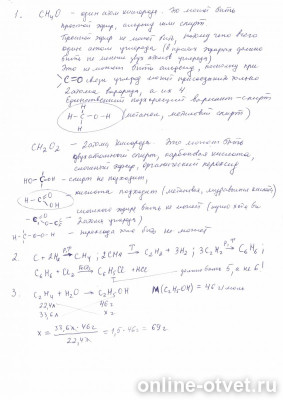 1. CH₄O - один атом кислорода. Это может быть
простой эфир, альдегид или спирт.
Простой эфир не может быть, потому что всего
один атом углерода (в простом эфире должно
быть не менее двух атомов углерода)
Это не может быть альдегид, потому при
C=O связи углерод может присоединить только
2 атома водорода, а их 4
Единственный подходящий вариант - спирт
H-C-O-H (метанол, метиловый спирт)
CH₂O₂ - 2 атома кислорода. Это может быть
двухатомный спирт, карбоновая кислота,
сложный эфир, органический пероксид
HO-C-OH - спирт не подходит,
H-C=O OH - кислота подходит (метановая, муравьиная кислота)
- сложный эфир быть не может (нужно хотя бы два
атома углерода)
H-C-O-O-H - пероксида тоже быть не может
2. C + 2H₂ → CH₄ ; 2CH₄ → C₂H₂ + 3H₂ ; 3C₂H₂ → C₆H₆ ;
C₆H₆ + Cl₂ → C₆H₅Cl + HCl
3. C₂H₄ + H₂O → C₂H₅OH M(C₂H₅OH) = 46 г/моль
22,4л 46г
33,6л x
x = 33,6л · 46г / 22,4л = 1,5 · 46г = 69г
online-otvet.ru